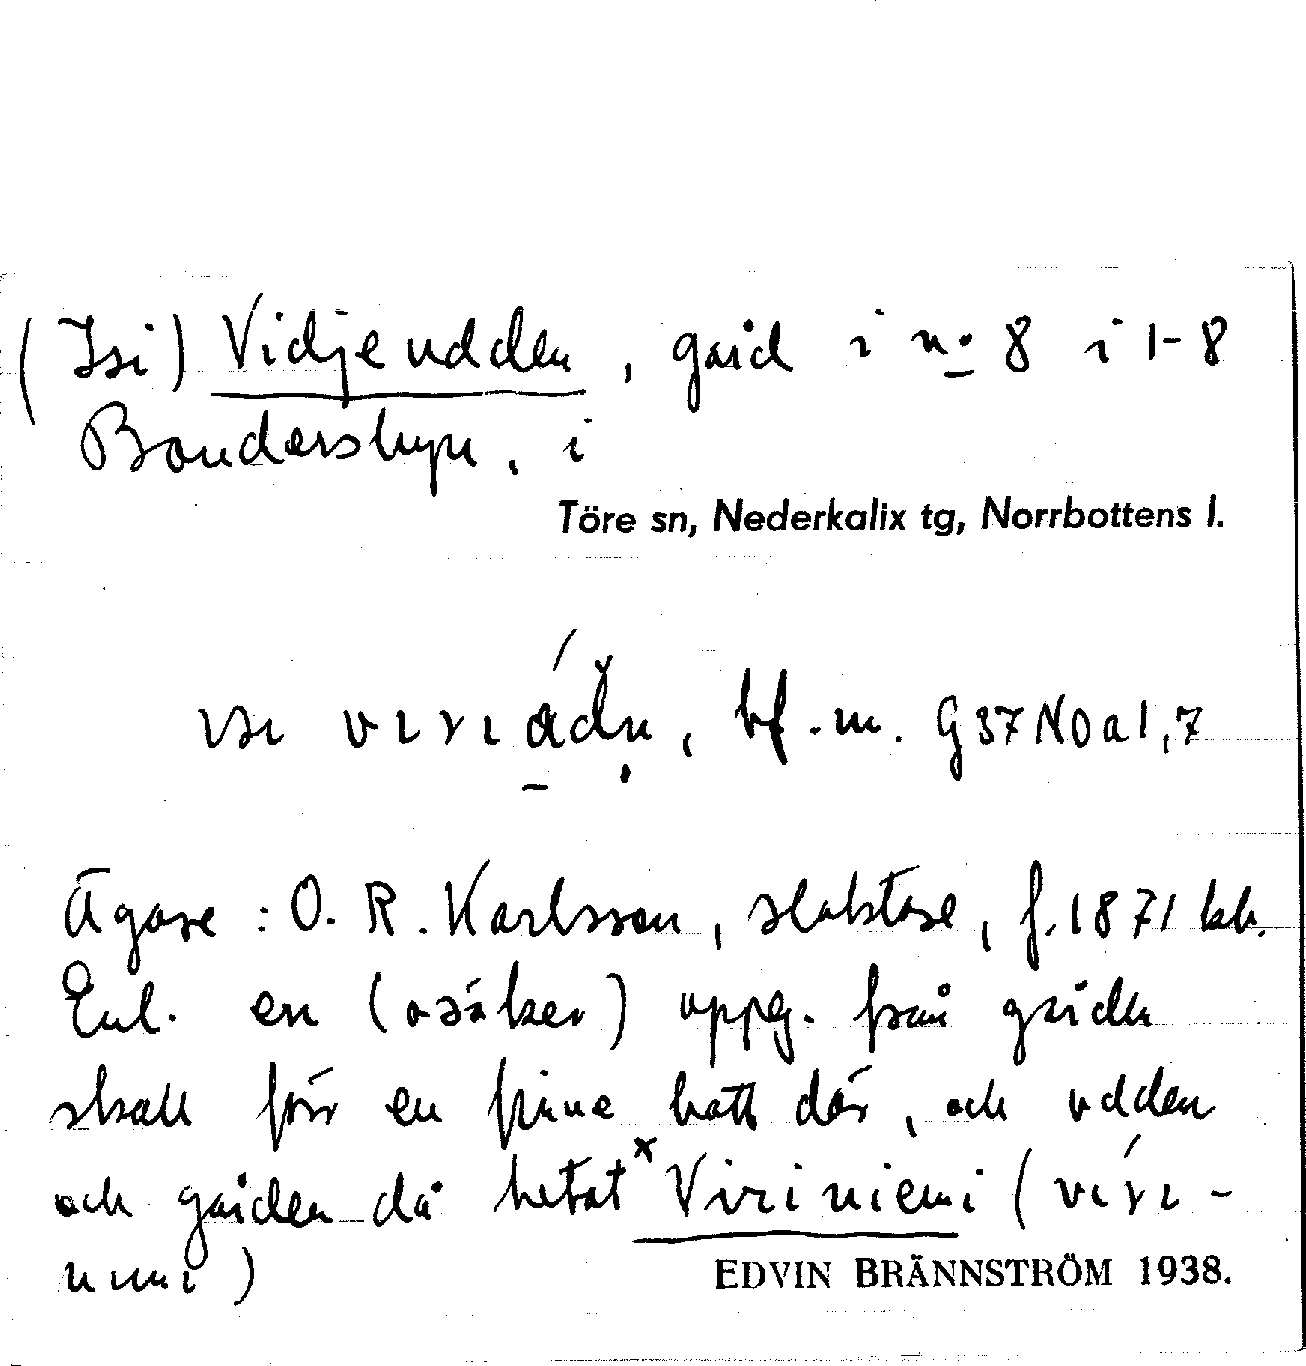 (Isi) Vidjeudden, gård i no 8 i 1-8
Bondersbyn, i
Töre sn, Nederkalix tg, Norrbottens l.
bf. m. G37N0a1,7
Ägare: O. R. Karlsson, slaktare, f. 1871 hh.
Enl. en (osäker) uppg. från gården
skall förr en finne bott där, och udden
och gården då hetat ˣViriniemi (vιrι-
nιmι)
EDVIN BRÄNNSTRÖM 1938.